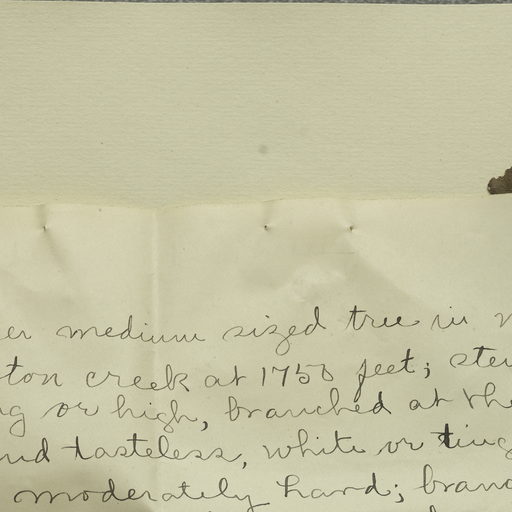 er medium sized tree in
ton creek at 1750 feet; ste
ng or high, branched at the
nd tasteless, white or ting
moderately hard; branc